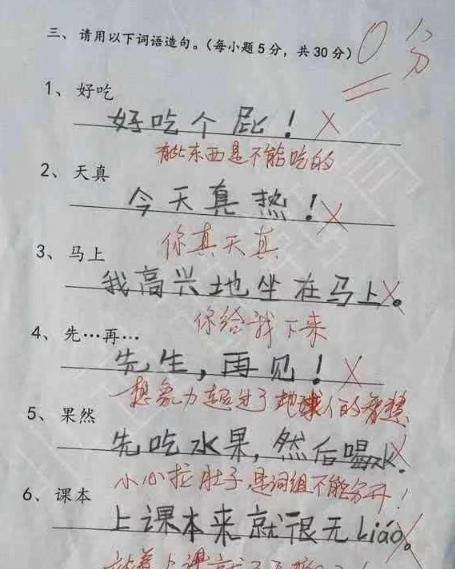 三、请用以下词语造句。(每小题5分，共30分) 0分
1、好吃
好吃个屁！
有些东西是不能吃的
2、天真
今天真热！
你真天真
3、马上
我高兴地坐在马上。
你给我下来
4、先…再…
先生，再见！
想象力超过了地球人的智慧
5、果然
先吃水果，然后喝水。
小心拉肚子，是词组不能分开！
6、课本
上课本来就很无Liáo。